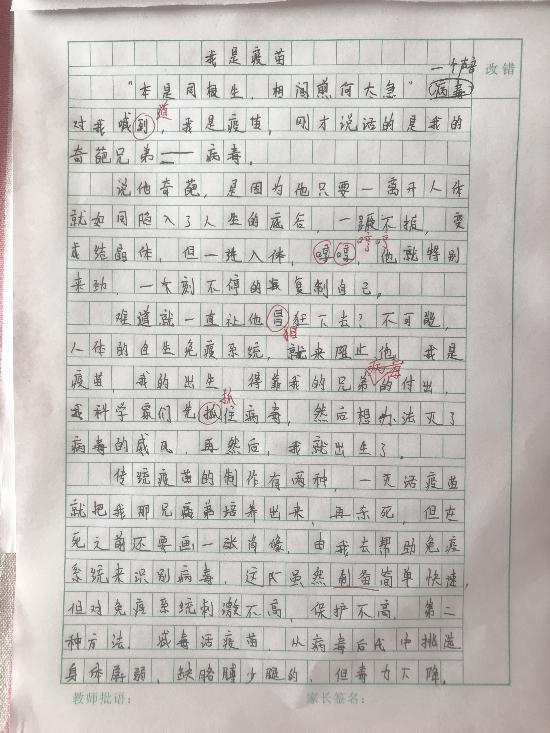 我是疫苗
一个声音 改错
"本是同根生，相间煎何太急" 病毒
道
对我喊到，我是疫苗，刚才说话的是我的
奇葩兄弟——病毒。
说他奇葩，是因为他只要一离开人体
就如同陷入了人生的底谷，一蹶不振，变
成结晶体，但一进入体，哼哼，他就特别
哼哼
来劲，一刻不停的复制自己。
难道就一直让他冒狂下去？不可能，
猖
人体的自生免疫系统，就来阻止他，我是
病毒
疫苗，我的出生，得靠我的兄弟的付出，
抓
我科学家们先抓住病毒，然后想办法灭了
病毒的威风，再然后，我就出生了。
传统疫苗的制作有两种，一灭活疫苗
就把我那兄弟培养出来，再杀死，但在
死之前还要画一张肖像，由我去帮助免疫
系统来识别病毒，这虽然制备简单快速，
但对免疫系统刺激不高，保护不高。第二
种方法，减毒活疫苗，从病毒后代中挑选
身体孱弱，缺胳膊少腿的，但毒力下降，
教师批语： 家长签名：